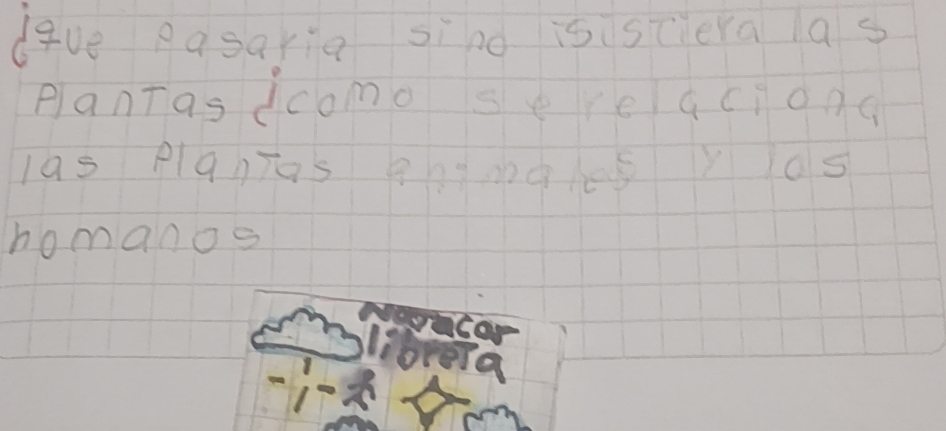 ¿que pasaria si no isistiera las
plantas ¿como se relaciona
las plantas animales y los
homanos
libreta